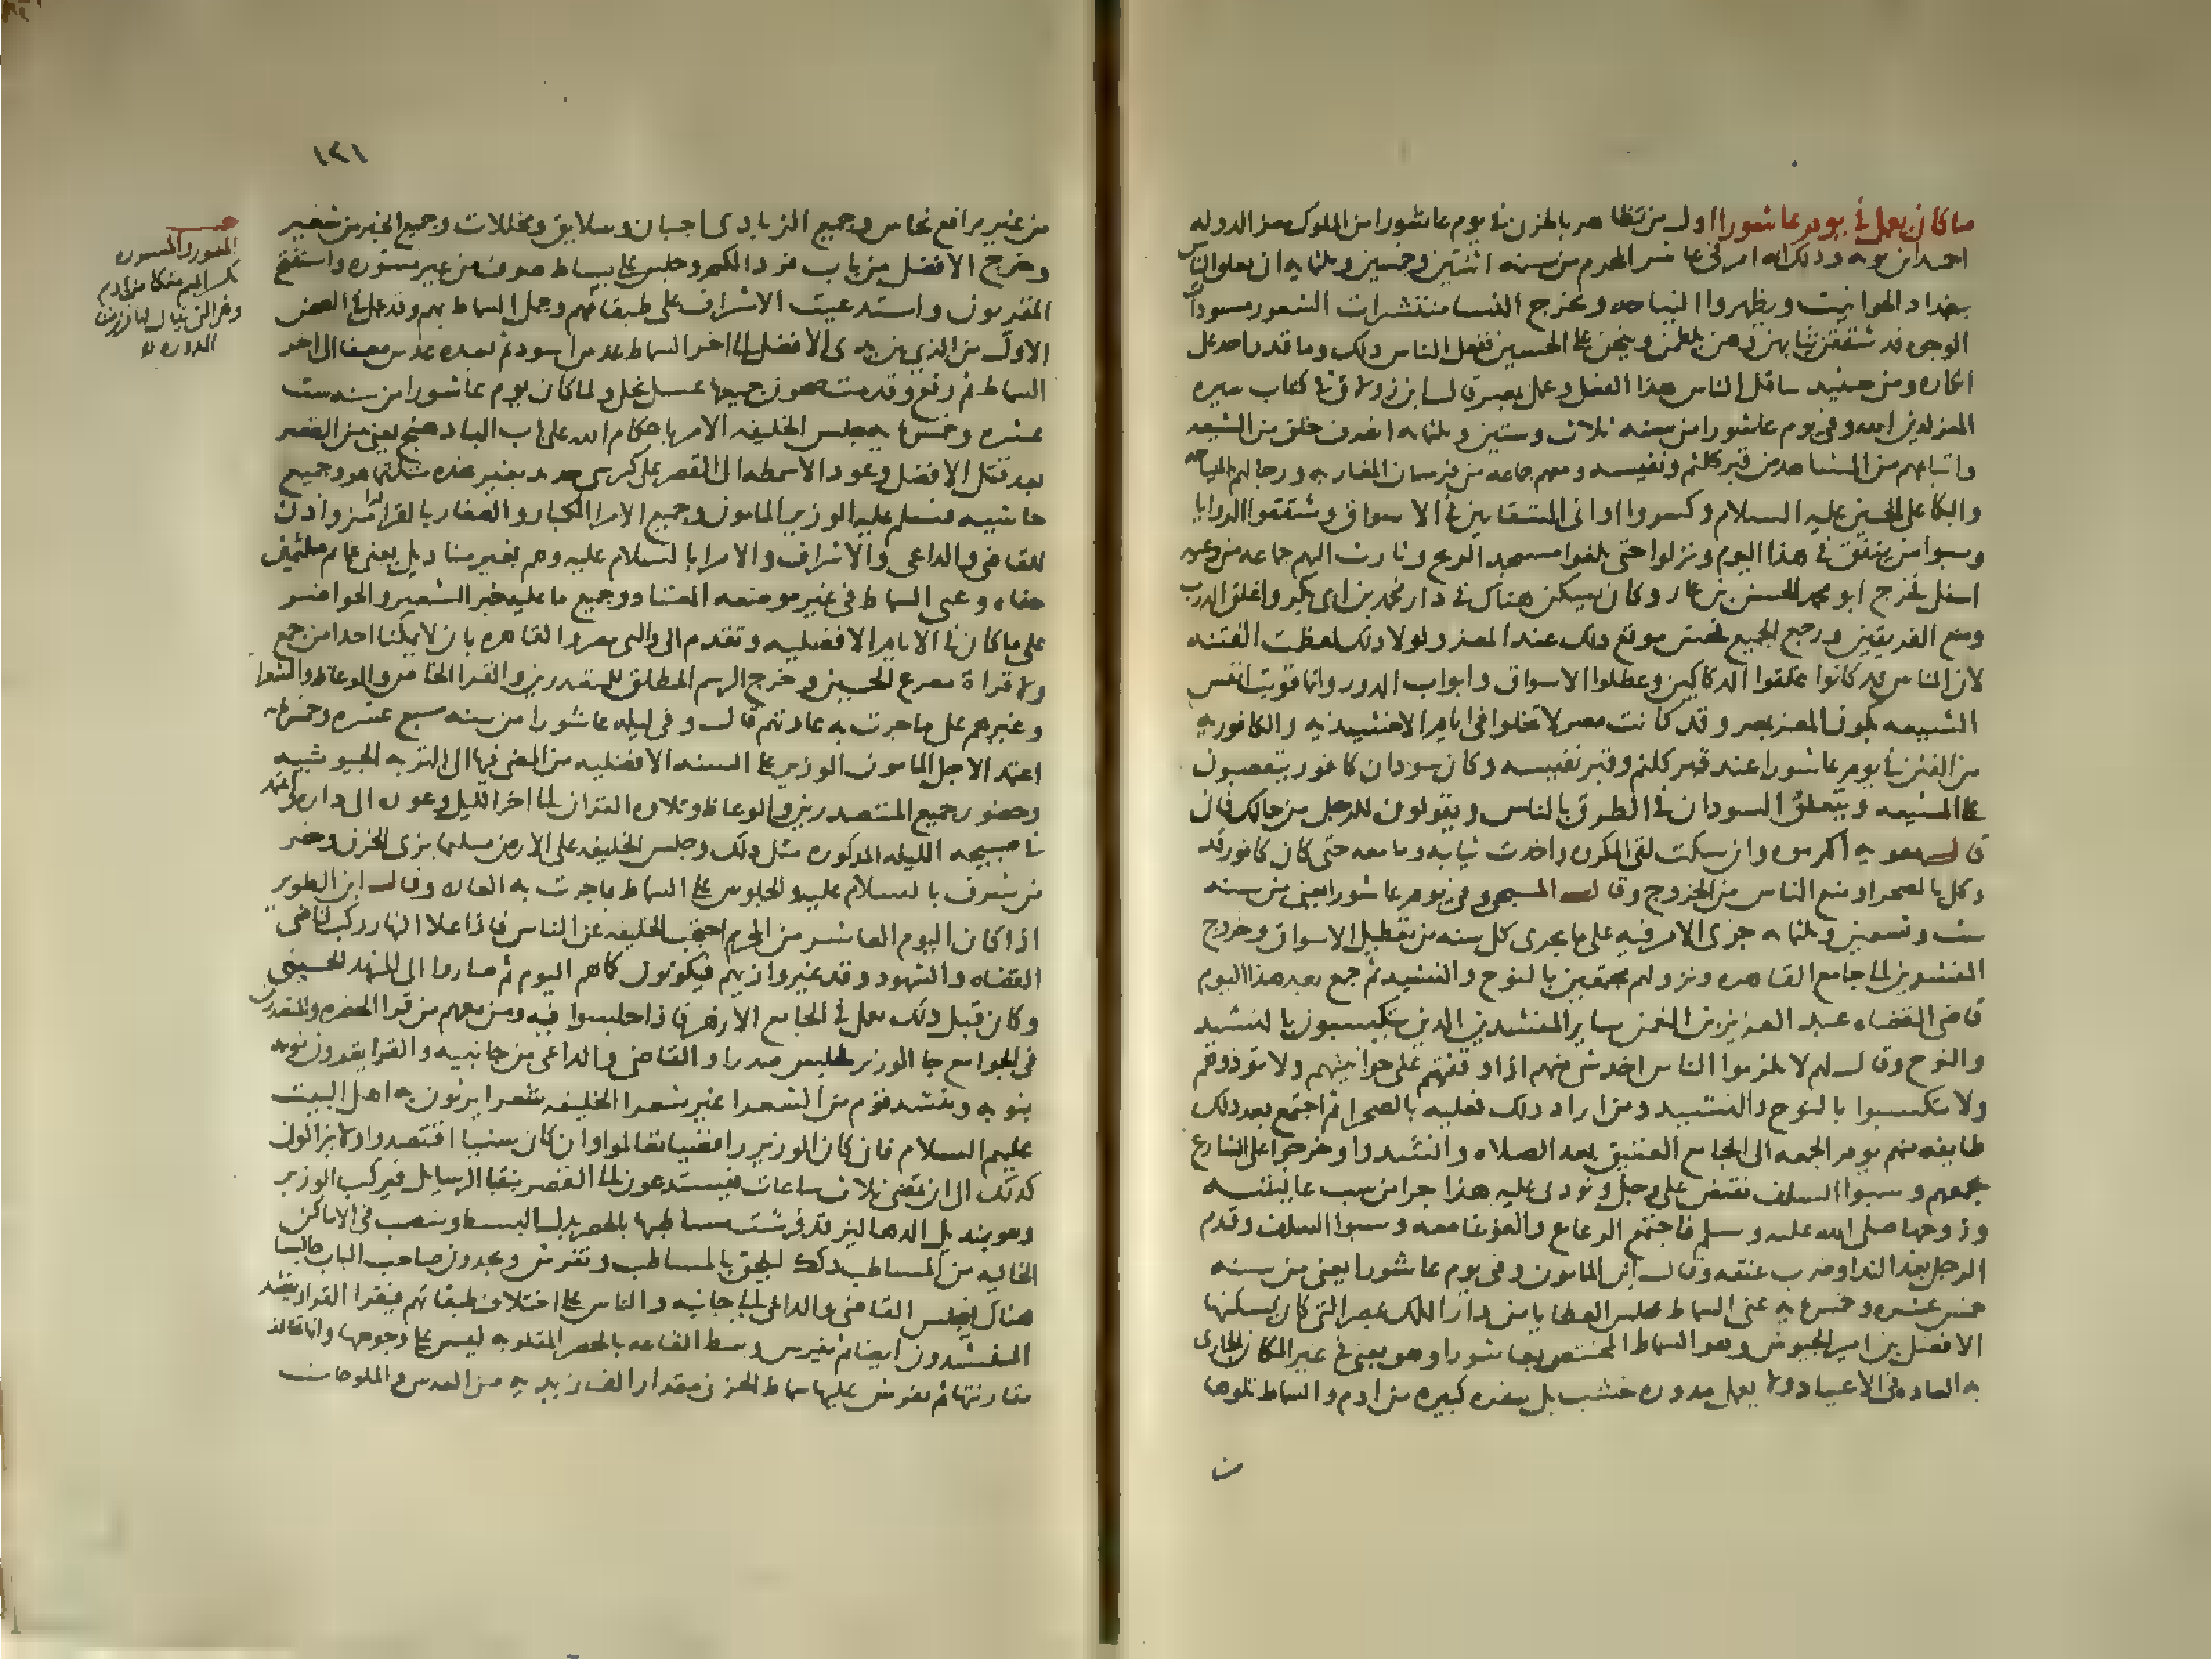 ما كان يعمل في يوم عاشورا اول من تظاهر بالحزن في يوم عاشورا من الملوك معز الدوله
احمد ابن بويه وذلك انه امر في عاشر المحرم من سنه اثنتين وخمسين وثلثمايه ان يغلق الناس
ببغداد الحوانيت ويظهروا النياحه وتخرج النسا منتشرات الشعور مسودات
الوجوه قد شققن ثيابهن وهن يلطمن وينحن على الحسين ففعل الناس ذلك وما قدر احد على
انكاره ومن حينيد الناس هذا الفعل وعمل بمصر قال ابن زولاق في كتاب سيره
المعز لدين الله وفي يوم عاشورا من سنه ثلاث وستين وثلثمايه انصرف خلق من الشيعه
واتباعهم من المشاهد من قبر كلثم ونفيسه ومعهم جماعه من فرسان المغاربه ورجالهم بالنياحه
والبكا على الحسين عليه السلام وكسروا اواني السقايين في الاسواق وشققوا الروايا
وسبوا من ينفق في هذا اليوم ونزلوا حتى بلغوا مسجد الريح وثارت اليهم جماعه من رعيه
اسفل فخرج ابو محمد الحسن بن عمار وكان يسكن هناك في دار محمد بن ابي بكر واغلق الدرب
ومنع الفريقين ورجع الجميع فحسن موقع ذلك عند المعز ولولا ذلك لعظمت الفتنه
لان الناس قد كانوا غلقوا الدكاكين وعطلوا الاسواق وابواب الدور وانما قويت انفس
الشيعه بكون المعز بمصر وقد كانت مصر لا تخلوا في ايام الاخشيديه والكافوريه
من الفتن في يوم عاشورا عند قبر كلثم وقبر نفيسه وكان سودان كافور يتعصبون
على الشيعه ويتعلق السودان في الطرق بالناس ويقولون للرجل من خالك فان
قال معويه اكرموه وان سكت لقي المكروه واخذت ثيابه وما معه حتى كان كافور قد
وكل بالصحرا ومنع الناس من الخروج وقال المسبحي وفي يوم عاشورا يعني من سنه
ست وتسعين وثلثمايه جرى الامر فيه على ما يجري كل سنه من تعطيل الاسواق وخروج
المنشدين الى جامع القاهره ونزولهم مجتمعين بالنوح والنشيد ثم جمع بعد هذا اليوم
قاضي القضاه عبد العزيز بن النعمن ساير المنشدين الذين يتكسبون بالنشيد
والنوح وقال لهم لا تلزموا الناس اخذ شي منهم اذا وقفتم على حوانيتهم ولا توذوهم
ولا تتكسبوا بالنوح والنشيد ومن اراد ذلك فعليه بالصحرا ثم اجتمع بعد ذلك
طايفه منهم يوم الجمعه الى الجامع العتيق بعد الصلاه وانشدوا وخرجوا على الشارع
بجمعهم وسبوا السلف فقبض على رجل ونودي عليه هذا جزا من سب عايشه
وزوجها صلى الله عليه وسلم فاجتمع الرعاع والغوغا معه وسبوا السلف وقدم
الرجل بعد الندا وضرب عنقه وقال ابن المامون وفي يوم عاشورا يعني من سنه
خمس عشره وخمسمايه عبي السماط بمجلس العطايا من دار الملك بمصر التي كان يسكنها
الافضل بن امير الجيوش وهو السماط المختص بعاشورا وهو يعبى في غير المكان الجاري
به العاده في الاعياد ولا يعمل مدوره خشب بل سفره كبيره من ادم والسماط يعلوها
١٢١
من غير مرافع نحاس وجميع الزبادي اجبان وسلايق ومخللات وجميع الخبز من شعير
وخرج الافضل من باب فرد الكم وجلس على بساط صوف من غير مشوره واستفتح
المقريون واستدعيت الاشراف على طبقاتهم وحمل السماط بهم وقد عمل في الصحن
الاول من الذي بين يدي الافضل الى اخر السماط عدس اسود ثم بعده عدس مصفا الى اخر
السماط ثم رفع وقدمت صحون جميعها عسل نحل ولما كان يوم عاشورا من سنه ست
عشره وخمسمايه جلس الخليفه الامر باحكام الله على باب الباذهنج يعني من القصر
بعد قتل الافضل وعود الاسمطه الى القصر على كرسي جريد بغير مخده متلثما هو وجميع
حاشيته فسلم عليه الوزير المامون وجميع الامرا الكبار والصغار بالقراميز واذن
للقاضي والداعي والاشراف والامرا بالسلام عليه وهم بغير مناديل يعني عمايم ملثمين
حفاه وعبي السماط في غير موضعه المعتاد وجميع ما عليه خبز الشعير والحواضر
على ما كان في الايام الافضليه وتقدم الى والى مصر والقاهره بان لا يمكنا احدا من جمع
ولا قراة مصرع الحسين وخرج الرسم المطلق للمتصدرين والقرا الخاص والوعاظ والشعرا
وغيرهم على ما جرت به عادتهم قال وفي ليله عاشورا من سنه سبع عشره وخمسمايه
اعتمد الاجل المامون الوزير على السنه الافضليه من المضي فيها الى التربه الجيوشيه
وحضور جميع المتصدرين والوعاظ وتلاوه القران الى اخر الليل وعوده الى داره واعتمد
في صبيحه الليله المذكوره مثل ذلك وجلس الخليفه على الارض متلثما بزي الحزن وحضر
من شرف بالسلام عليه والجلوس على السماط بما جرت به العاده وقال ابن الطوير
اذا كان اليوم العاشر من المحرم احتجب الخليفه عن الناس فاذا علا النهار ركب قاضي
القضاه والشهود وقد غيروا زيهم فيكونون كما هم اليوم ثم صاروا الى المشهد الحسيني
وكان قبل ذلك يعمل في الجامع الازهر فاذا جلسوا فيه ومن معهم من قرا الحضره والمتصدرين
في الجوامع جا الوزير فجلس صدرا والقاضي والداعي من جانبيه والقرا يقرون نوبه
بنوبه وينشد قوم من الشعرا غير شعرا الخليفه شعرا يرثون به اهل البيت
عليهم السلام فان كان الوزير رافضيا تغالوا وان كان سنيا اقتصدوا ولا يزالون
كذلك الى ان تمضي ثلاث ساعات فيستدعون الى القصر بنقبا الرسايل فيركب الوزير
وهو بمنديل الدهاليز قد فرشت مساطبها بالحصر بدل البسط وينصب في الاماكن
الخاليه من المساطب دكك لتلحق بالمساطب وتفرش ويجدون صاحب الباب جالسا
هناك فيجلس القاضي والداعي الى جانبه والناس على اختلاف طبقاتهم فيقرا القرا وينشد
المنشدون ايضا ثم يفرش وسط القاعه بالحصر المقلوبه ليس على وجوهها وانما تخالف
مفارشها ثم يفرش عليها سماط الحزن مقدار الف زبديه من العدس والملوحات